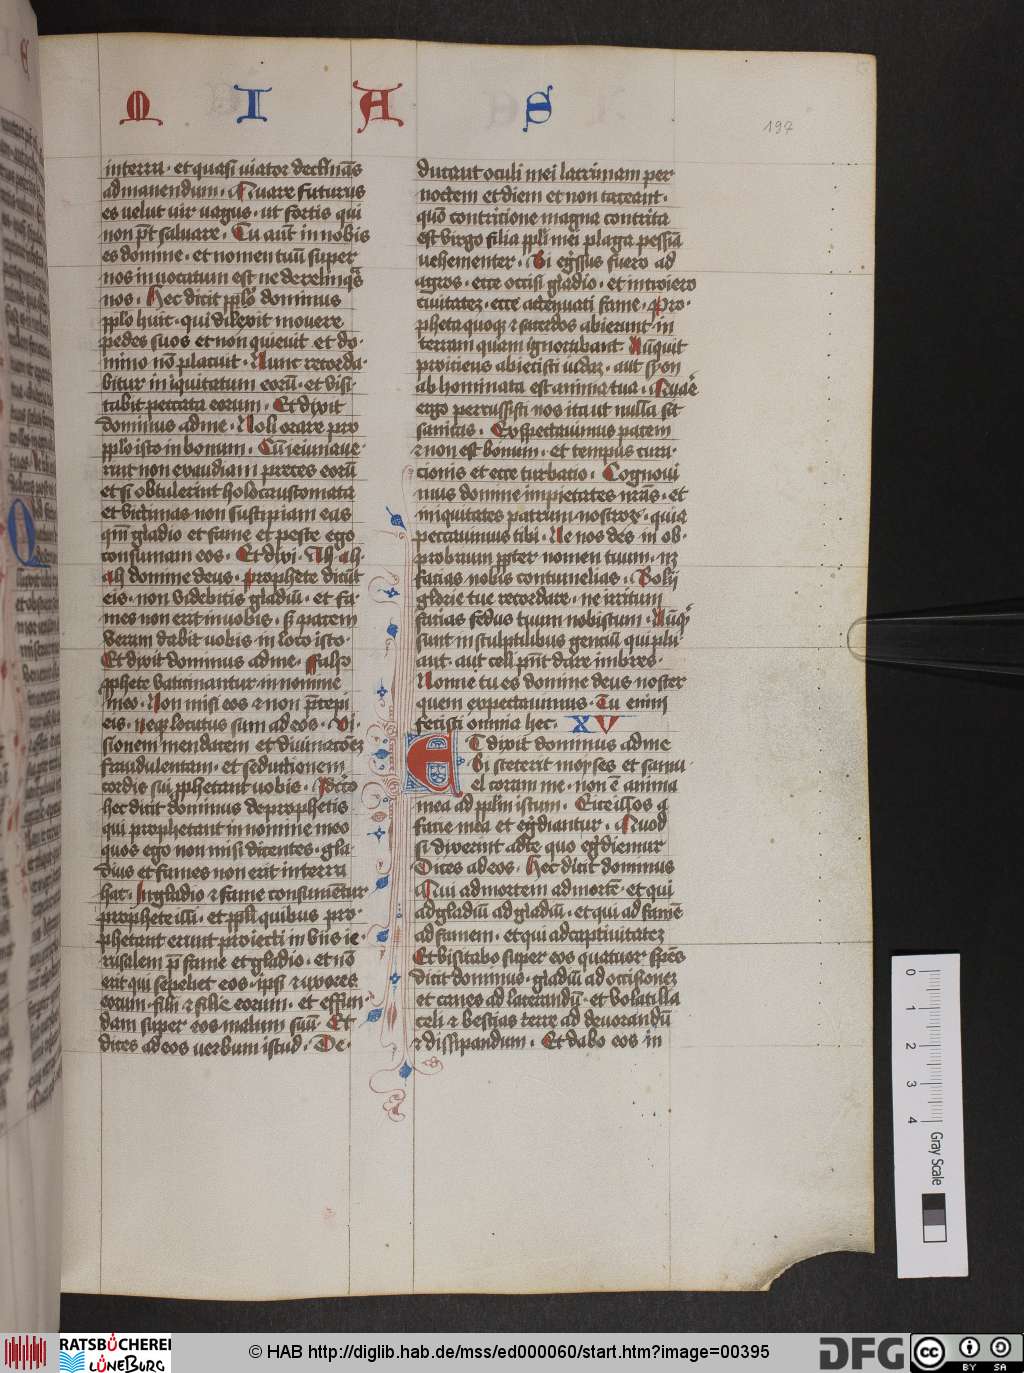 M I A S
197
in terra · et quasi viator declinās
ad manendum · Quare futurus
es velut vir vagus · ut fortis qui
non pōt salvare · Tu aūt in nobis
es domine · et nomen tuū super
nos invocatum est ne derelinqās
nos · Hec dicit pplo dominus
pplo huic · qui dilexit movere
pedes suos et non quievit et do·
mino nō placuit · Nunc recorda·
bitur iniquitatum eorū · et visi·
tabit peccata eorum · Et dixit
dominus ad me · Noli orare pro
pplo isto in bonum · Cū ieiunave·
rint non exaudiam preces eorū
et si obtulerint holocaustomata
et victimas non suscipiam eas
qm̄ gladio et fame et peste ego
consumam eos · Et dixi · Ah ah·
ah domine deus · prophete dicūt
eis · non videbitis gladiū · et fa·
mes non erit in vobis · s̄ pacem
veram dabit vobis in loco isto·
Et dixit dominus ad me · Falso
pphete vaticinantur in nomine
meo · Non misi eos et non p̄cepi
eis · neq locutus sum ad eos · Vi·
sionem mendacem et divinacōez
fraudulentam · et seductionem
cordis sui pphetant vobis · Idcīco
hec dicit dominus de prophetis
qui prophetant in nomine meo
quos ego non misi dicentes · gla·
dius et fames non erit in terra
hac · In gladio et fame consumētur
prophete illi · et ppli quibus pro·
phetant erunt proiecti in viis ie·
rusalem p̄ fame et gladio · et nō
erit qui sepeliet eos · ipsi et uxores
eorum · filii et filie eorum · et effun·
dam super eos malum suū · Et
dices ad eos verbum istud · De·
ducant oculi mei lacrimam per
noctem et diem et non taceant·
quō contricione magna contrita
est virgo filia ppli mei plaga pessīa
vehementer · Si egssus fuero ad
agros · ecce occisi gladio · et introiero
civitatez · ecce attenuati fame · Pro·
pheta quoq et sacerdos abierunt in
terram quam ignorabant · Nūquit
proiciens abiecisti iudaz · aut syon
abhominata est anima tua · Quare
ergo percussisti nos ita ut nulla sit
sanitas · Exspectavimus pacem
et non est bonum · et tempus cura·
cionis et ecce turbatio · Cognovi
mus domine impietates nrās · et
iniquitates patrum nostror · quia
peccavimus tibi · Ne nos des in ob·
probrium ppter nomen tuum · nz
facias nobis contumelias · Solii
glorie tue recordare · ne irritum
facias fedus tuum nobiscum · Nūqd
sunt in sculptilibus genciū qui plu
ant · aut celi pn̄t dare imbres·
Nonne tu es domine deus noster
quem expectavimus · Tu enim
fecisti omnia hec · XV
ET dixit dominus ad me
Si steterit moyses et samu·
el coram me · non ē anima
mea ad pplm istum · Eice illos a
facie mea et egdiantur · Quod
si dixerint ad te quo egdiemur
Dices ad eos · Hec dicit dominus
Qui ad mortem ad mortē · et qui
ad gladiū ad gladiū · et qui ad famē
ad famem · et qui ad captivitatez
Et visitabo super eos quatuor spēs
dicit dominus · gladiū ad occisionez
et canes ad lacerandū · et volatilla
celi et bestias terre ad devorandū
et dissipandum · Et dabo eos in
0 1 2 3 4
Gray Scale
RATSBÜCHEREI
LÜNEBURG
© HAB http://diglib.hab.de/mss/ed000060/start.htm?image=00395
DFG
cc BY SA